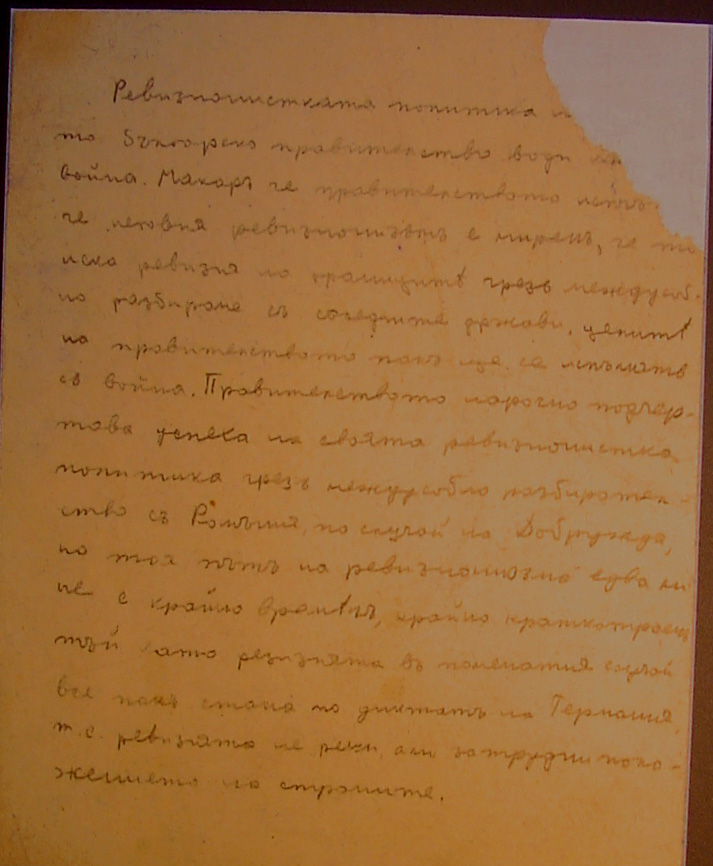 Ревизионистката политика
то българско правителство води
война. Макаръ че правителството
че неговия ревизионизъмъ е миренъ, че то
иска ревизия на границитѣ чрезъ междуособ-
но разбиране съ соседните държави, ценитѣ
на правителството пакъ ще се
съ война. Правителството нарочно подчер-
тава успеха на своята ревизионистка
политика чрезъ междуособно разбирателс-
тво съ Ромъния, по случай на Добруджа,
но тоя пътъ на ревизионизма едва ли
не е крайно времѣнъ, крайно краткотраенъ
тъй като ревизията въ помената случай
все пакъ стана по диктатъ на Германия,
т.е. ревизията не реши, ами затрудни поло-
жението на страните.